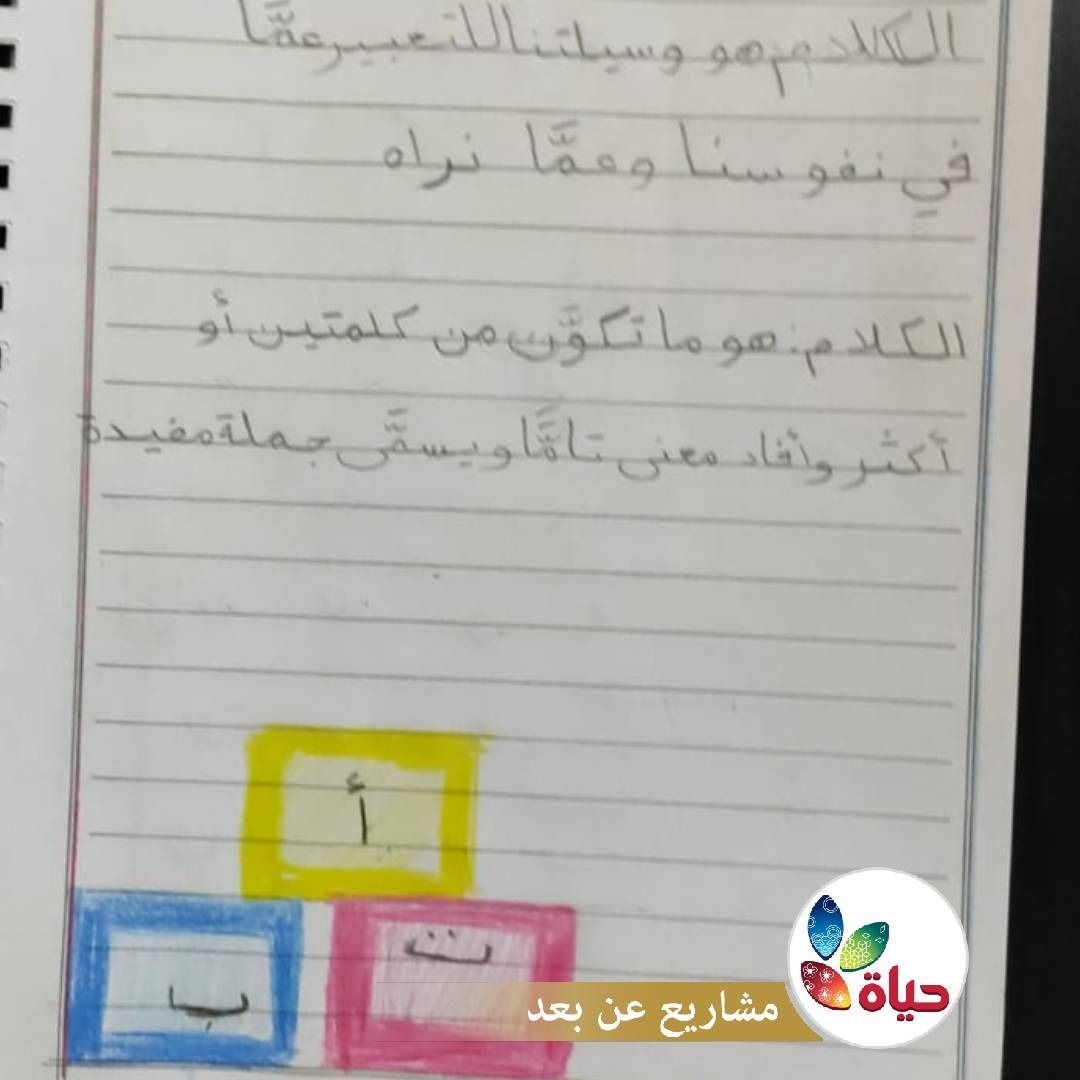 الكلام هو وسيلتنا للتعبير عمَّا
في نفوسنا وعمَّا نراه
الكلام: هو ما تكوَّن من كلمتين أو
أكثر وأفاد معنى تامًّا ويسمَّى جملة مفيدة
أ
ب ت
حياة
مشاريع عن بعد